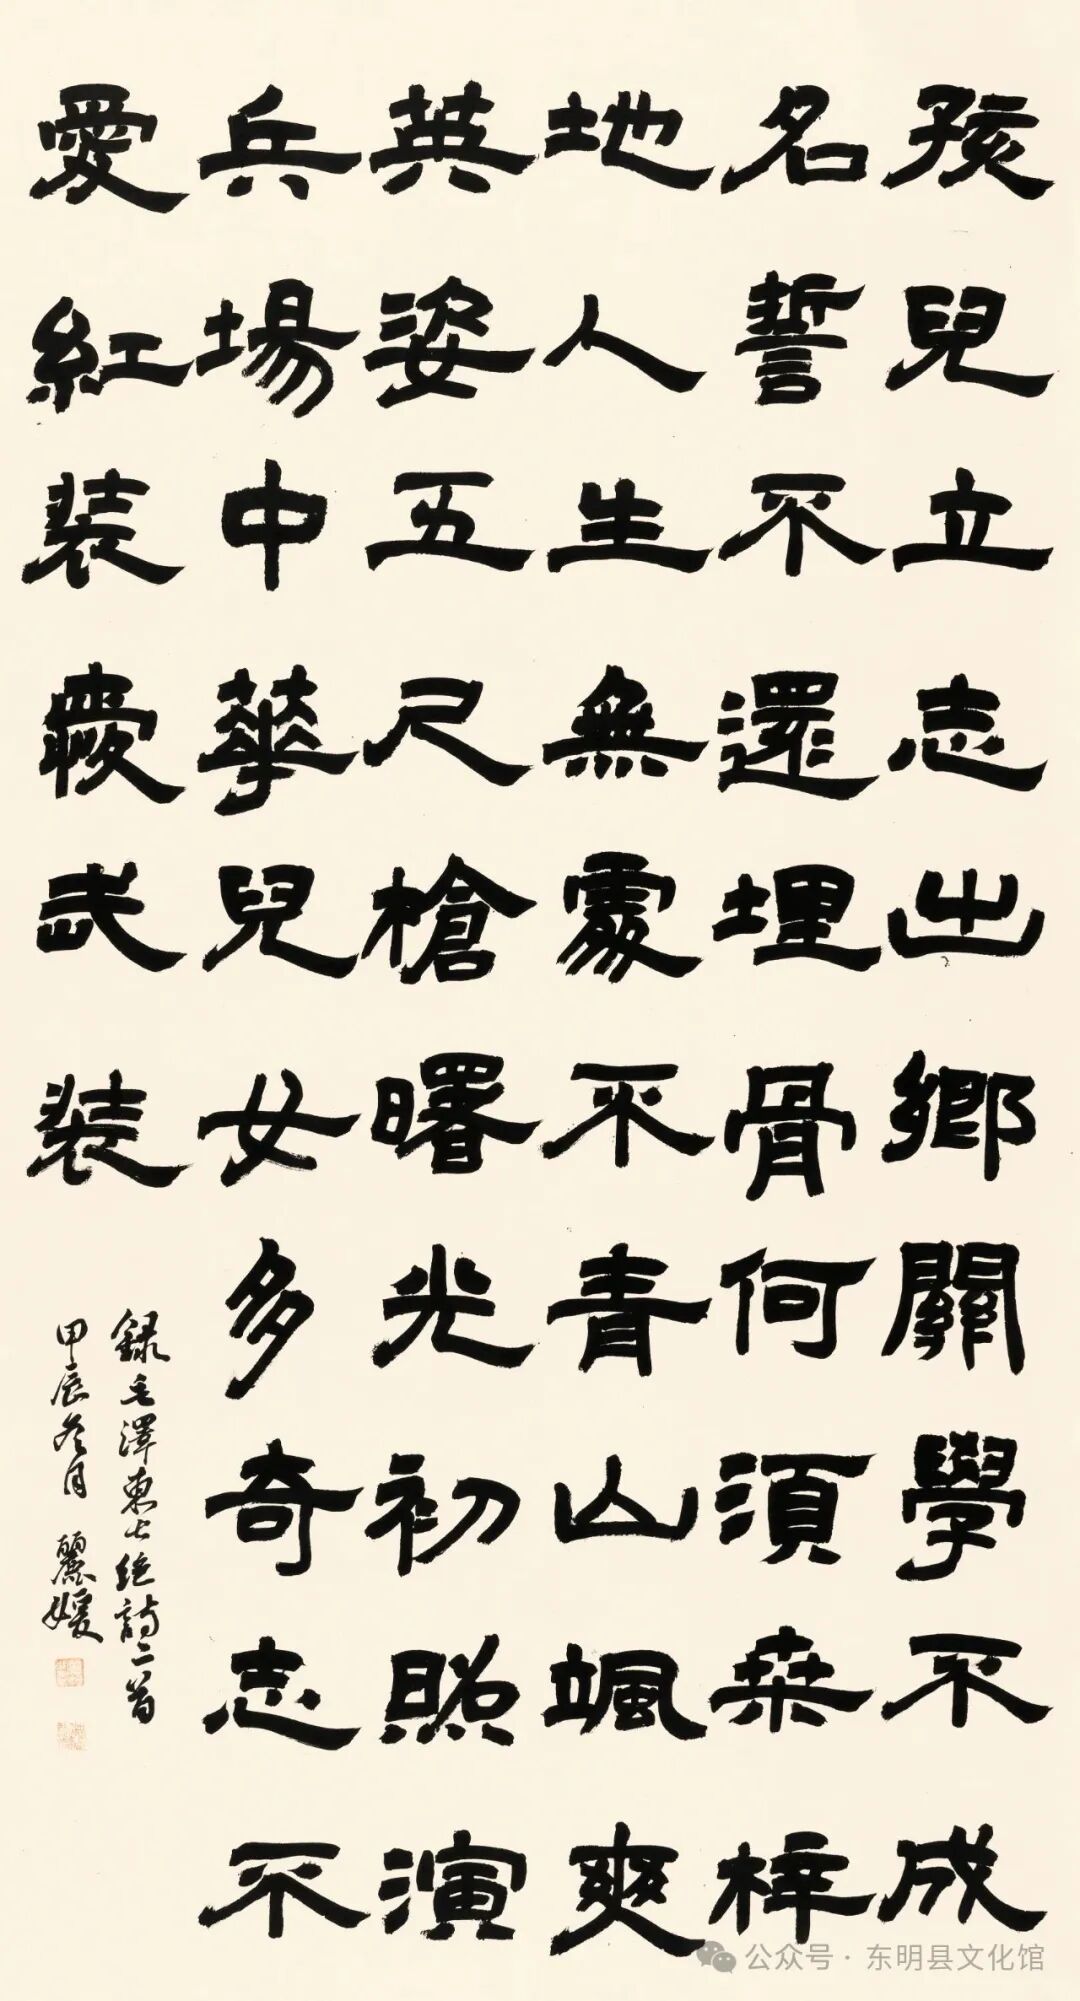 孩兒立志出鄉關學不成
名誓不還埋骨何須桑梓
地人生無處不青山颯爽
英姿五尺槍曙光初照演
兵場中華兒女多奇志不
愛紅裝愛武裝
録毛澤東七絶詩二首
甲辰冬月 麗媛
公众号·东明县文化馆